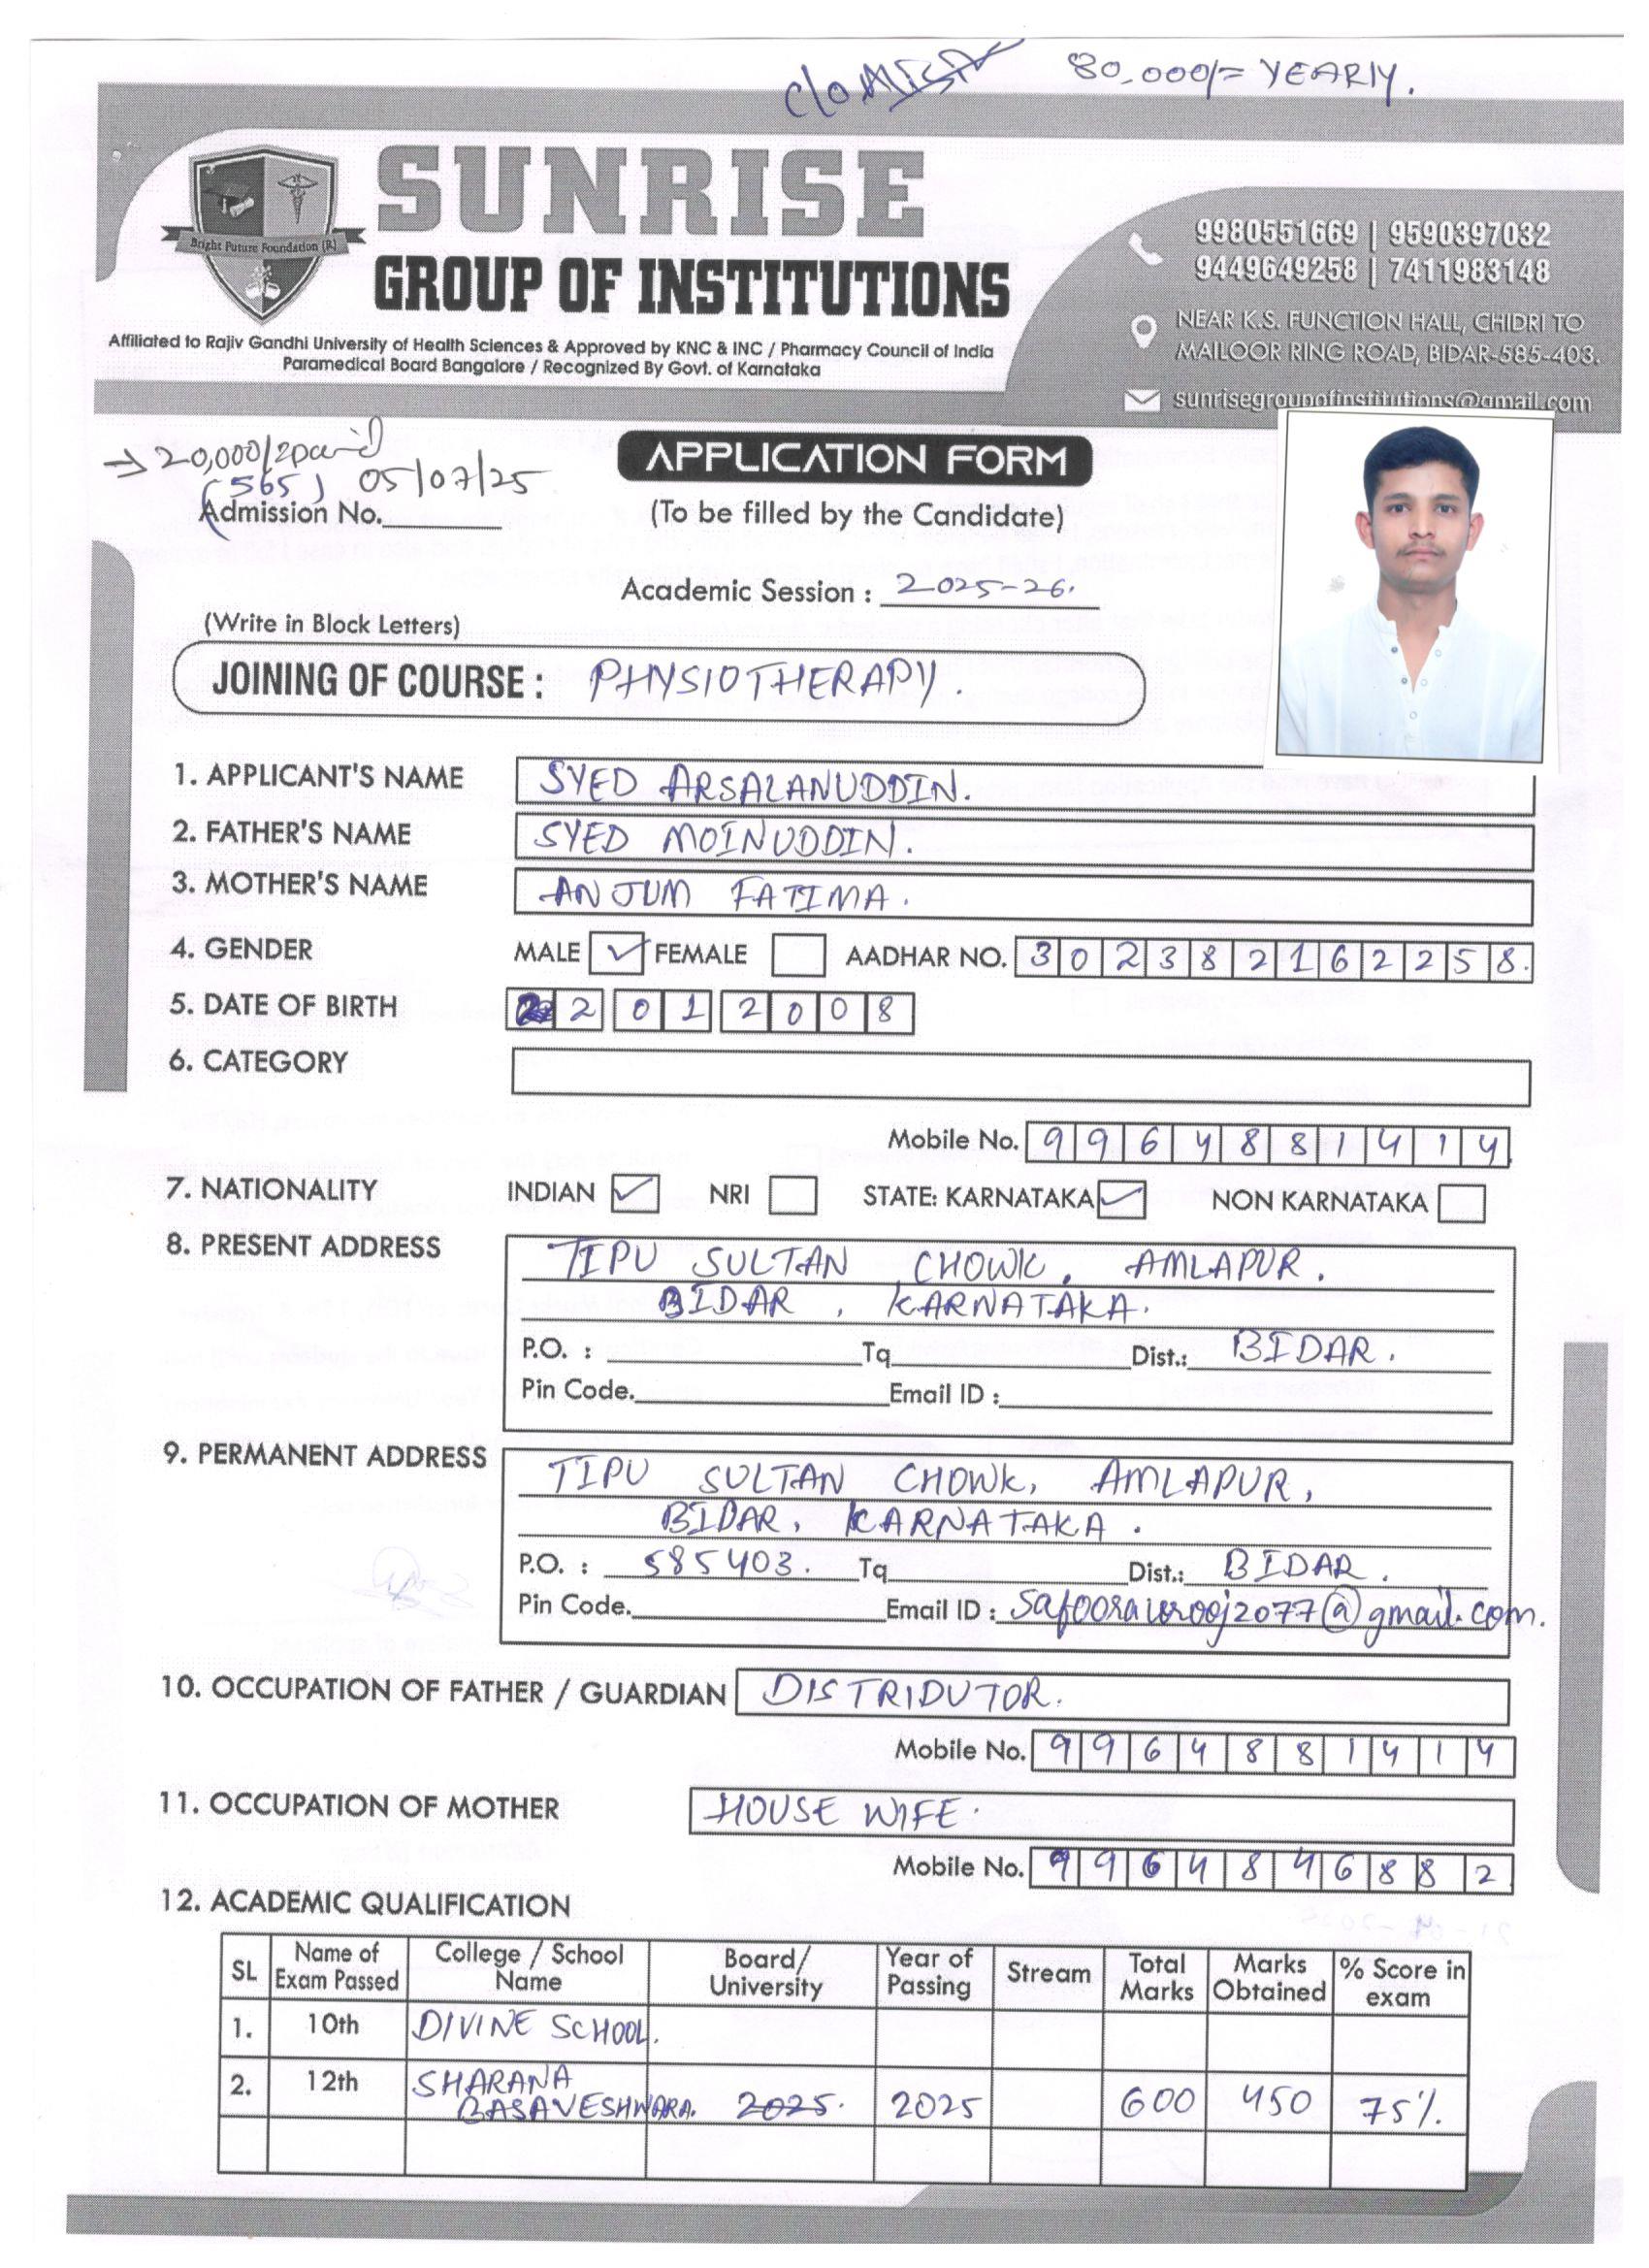 80,000/= YEARLY.
SUNRISE
GROUP OF INSTITUTIONS
Bright Future Foundation (R)
Affiliated to Rajiv Gandhi University of Health Sciences & Approved by KNC & INC / Pharmacy Council of India
Paramedical Board Bangalore / Recognized By Govt. of Karnataka
9980551669 | 9590397032
9449649258 | 7411983148
NEAR K.S. FUNCTION HALL, CHIDRI TO
MAILOOR RING ROAD, BIDAR-585-403.
sunrisegroupofinstitutions@gmail.com
→ 20,000/- paid
(565) 05/07/25
Admission No.
APPLICATION FORM
(To be filled by the Candidate)
Academic Session : 2025-26.
(Write in Block Letters)
JOINING OF COURSE : PHYSIOTHERAPY.
1. APPLICANT'S NAME SYED ARSALANUDDIN.
2. FATHER'S NAME SYED MOINUDDIN.
3. MOTHER'S NAME ANJUM FATIMA.
4. GENDER MALE ✓ FEMALE AADHAR NO. 302382162258.
5. DATE OF BIRTH 22 01 2008
6. CATEGORY
Mobile No. 9964881414
7. NATIONALITY INDIAN ✓ NRI STATE: KARNATAKA ✓ NON KARNATAKA
8. PRESENT ADDRESS TIPU SULTAN CHOWK, AMLAPUR.
BIDAR, KARNATAKA.
P.O. : Tq Dist.: BIDAR.
Pin Code. Email ID :
9. PERMANENT ADDRESS TIPU SULTAN CHOWK, AMLAPUR,
BIDAR, KARNATAKA.
P.O. : 585403. Tq Dist.: BIDAR.
Pin Code. Email ID : safooraurooj2077@gmail.com.
10. OCCUPATION OF FATHER / GUARDIAN DISTRIDUTOR.
Mobile No. 9964881414
11. OCCUPATION OF MOTHER HOUSE WIFE.
Mobile No. 9964846882
12. ACADEMIC QUALIFICATION
SL Name of Exam Passed College / School Name Board/ University Year of Passing Stream Total Marks Marks Obtained % Score in exam
1. 10th DIVINE SCHOOL.
2. 12th SHARANA BASAVESHWARA. 2025. 2025 600 450 75%